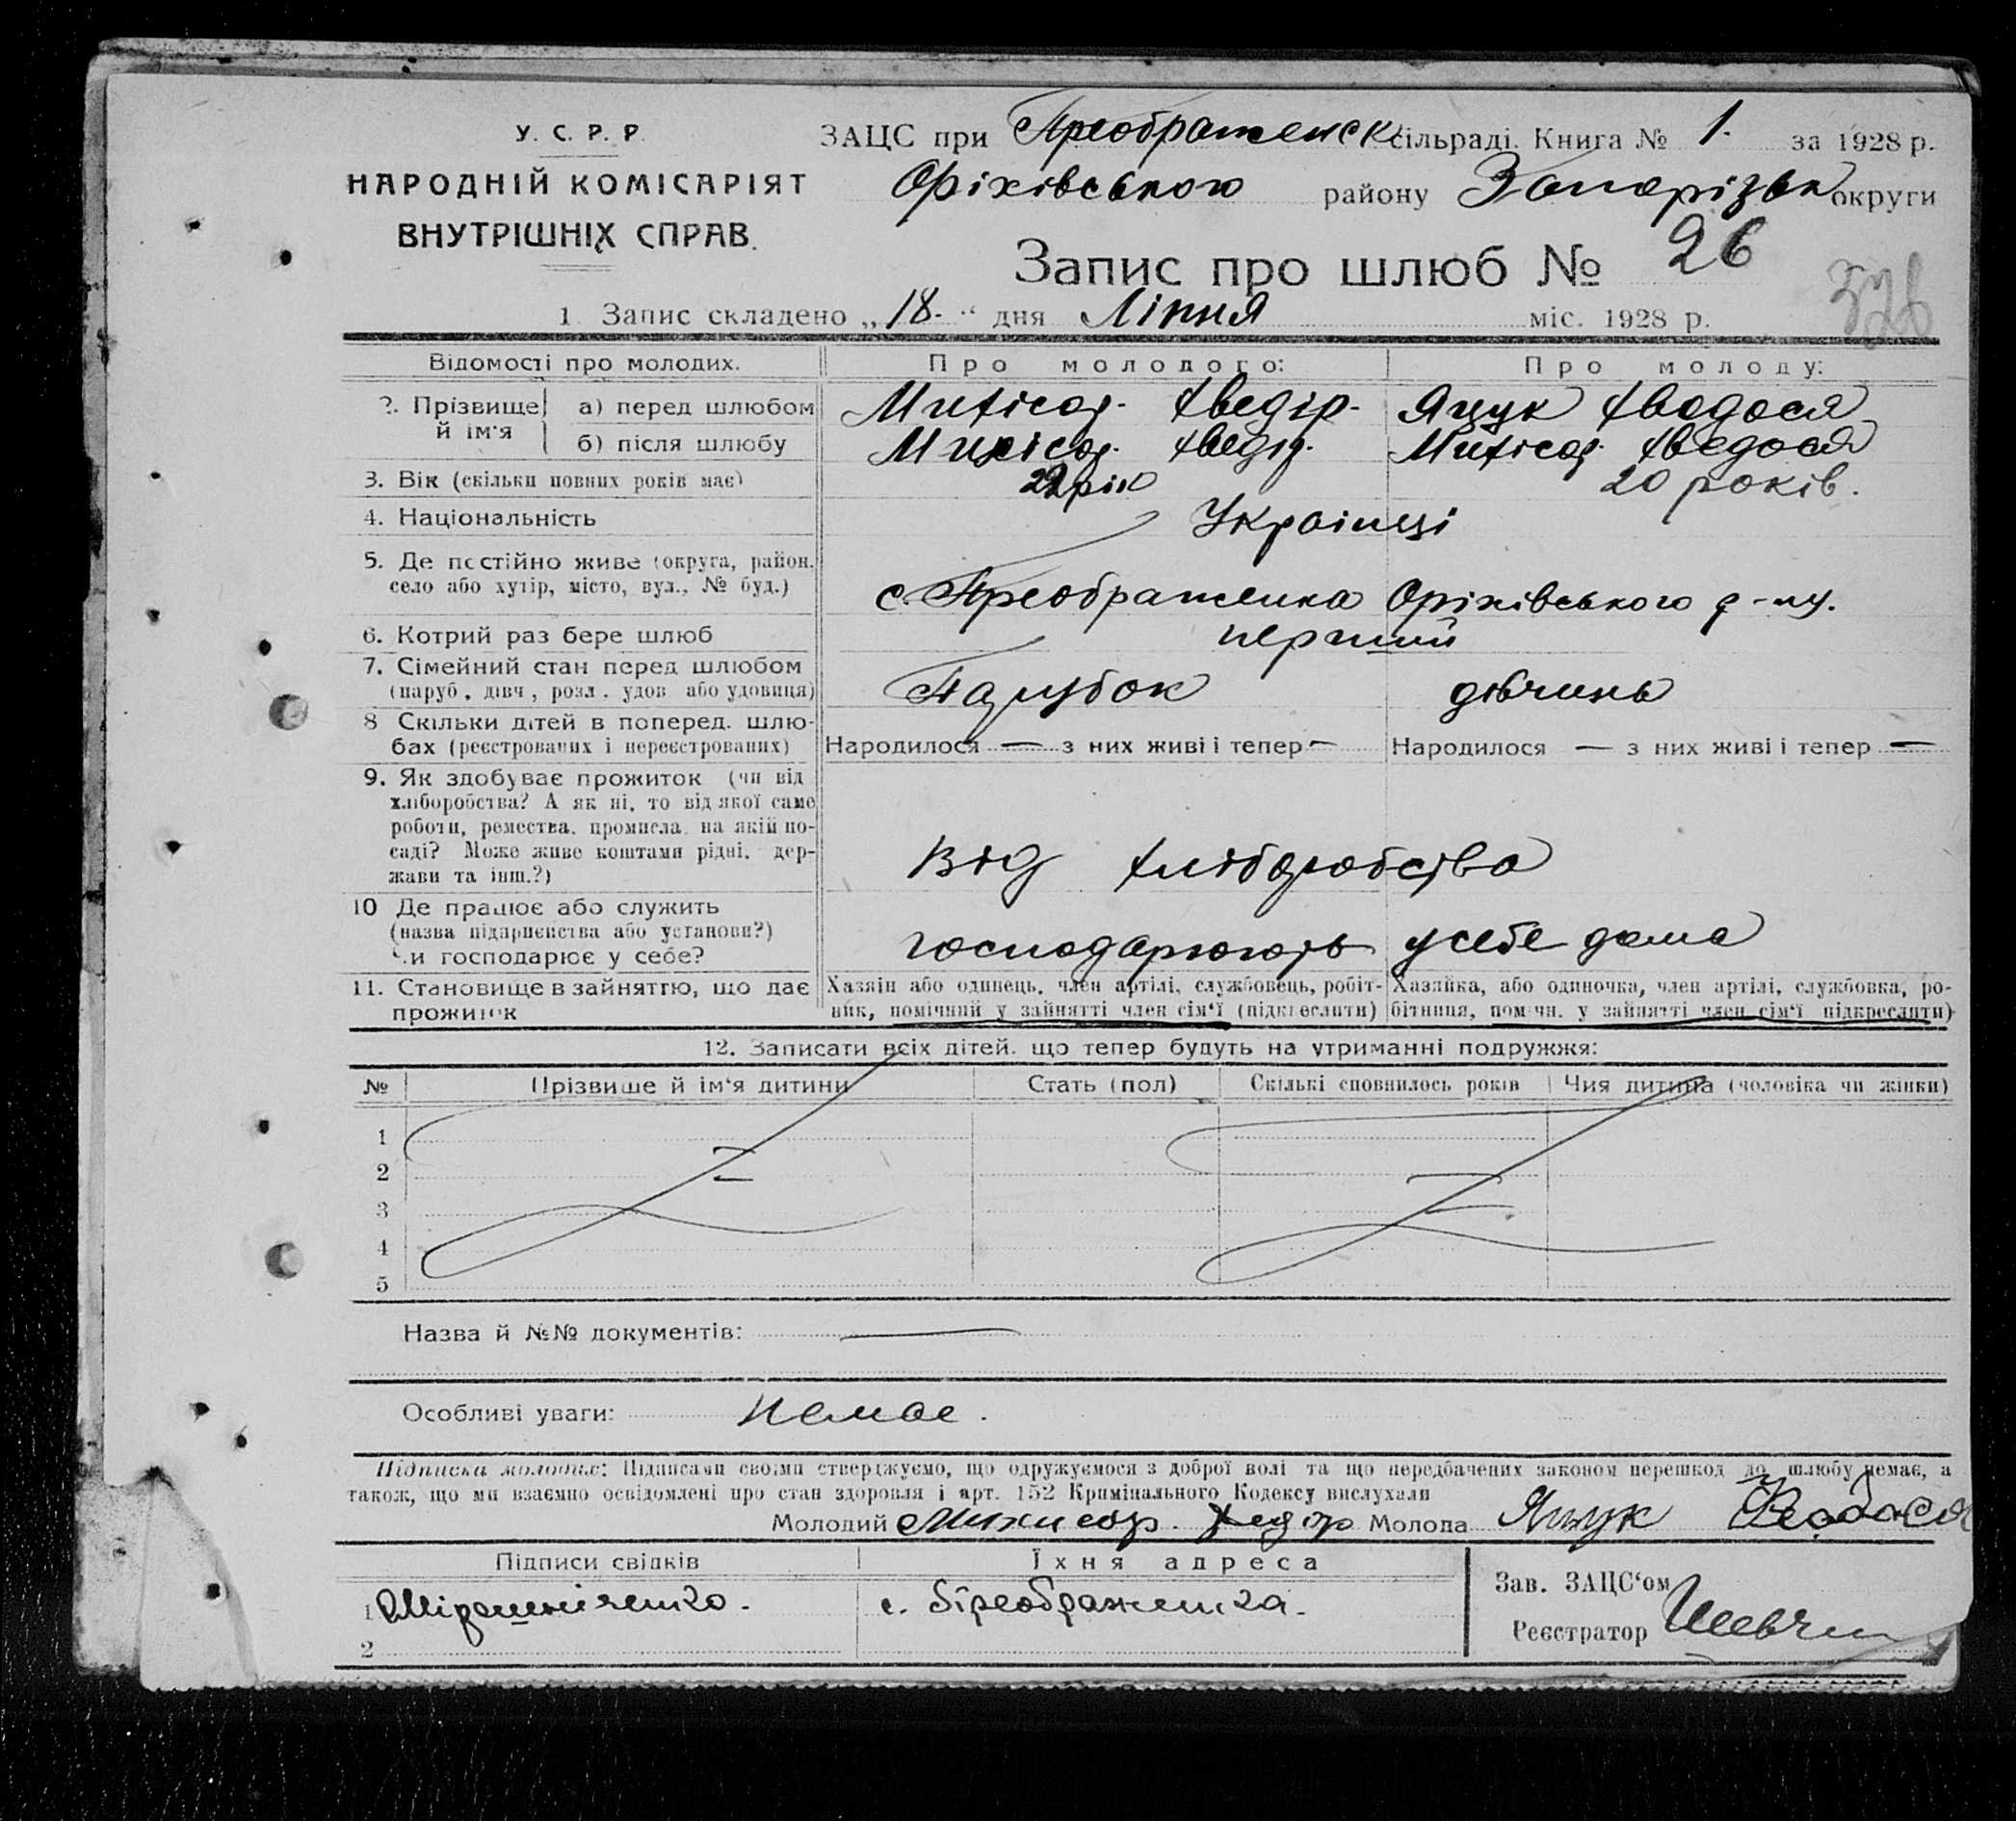 У. С. Р. Р.
НАРОДНІЙ КОМІСАРІЯТ
ВНУТРІШНІХ СПРАВ.
ЗАЦС при Преображенск сільраді. Книга № 1. за 1928 р.
Оріхівського району Запорізьк округи
Запис про шлюб № 26
326
1. Запис складено „18.“ дня Ліпня міс. 1928 р.
Відомості про молодих. Про молодого: Про молоду:
2. Прізвище й ім'я а) перед шлюбом Михісор. Хведір. Яцук Хводося
б) після шлюбу Михісор. Хведір. Михісор. Хведося
3. Вік (скільки повних років має) 22 рік 20 років.
4. Національність Українці
5. Де постійно живе (округа, район, село або хутір, місто, вул., № буд.) с. Преображенка Оріхівського р-ну.
6. Котрий раз бере шлюб перший
7. Сімейний стан перед шлюбом (паруб., дівч., розл. удов. або удовиця) Парубок дівчина
8 Скільки дітей в поперед. шлюбах (реєстрованих і нереєстрованих) Народилося — з них живі і тепер — Народилося — з них живі і тепер —
9. Як здобуває прожиток (чи від
хліборобства? А як ні, то від якої само
роботи, ремества, промисла, на якій по-
саді? Може живе коштами рідні, дер-
жави та інш.?) Від хліборобства
10 Де працює або служить
(назва підприємства або установи?)
Чи господарює у себе? господарюють у себе дома
11. Становище в зайняттю, що дає прожиток
Хазяїн або одинець, член артілі, службовець, робіт-
ник, помічний у зайнятті член сім'ї (підкреслити)
Хазяйка, або одиночка, член артілі, службовка, ро-
бітниця, помічн. у зайнятті член сім'ї підкреслити)
12. Записати всіх дітей, що тепер будуть на утриманні подружжя:
№ Прізвище й ім'я дитини Стать (пол) Скількі сповнилось років Чия дитина (чоловіка чи жінки)
1
2
3
4
5
Назва й №№ документів: —
Особливі уваги: немає.
Підписка молодих: Підписами своїми стверджуємо, що одружуємося з доброї волі та що передбачених законом перешкод до шлюбу немає, а
також, що ми взаємно освідомлені про стан здоровля і арт. 152 Кримінального Кодексу вислухали
Молодий Михисор. Хведір Молода Яцук Феодося
Підписи свідків Їхня адреса
1 Мірошніченко. с. Преображенка.
2
Зав. ЗАЦС'ом
Реєстратор Шевчен